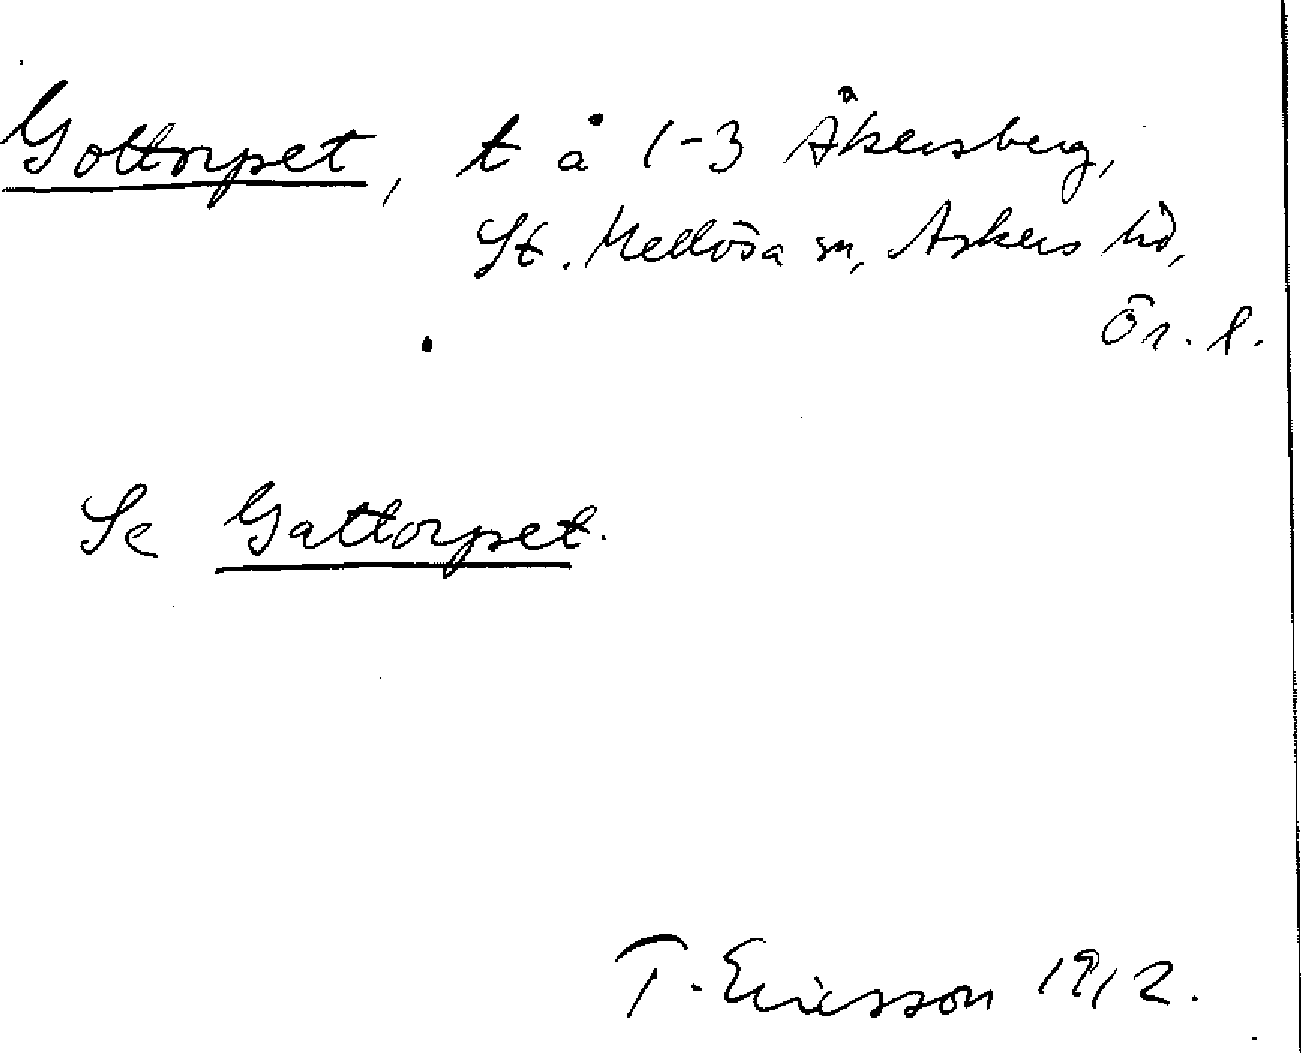 Gottorpet, t å 1-3 Åkersberg,
St. Mellösa sn, Askers hd,
Ör. l.
Se Gattorpet.
T. Ericsson 1912.